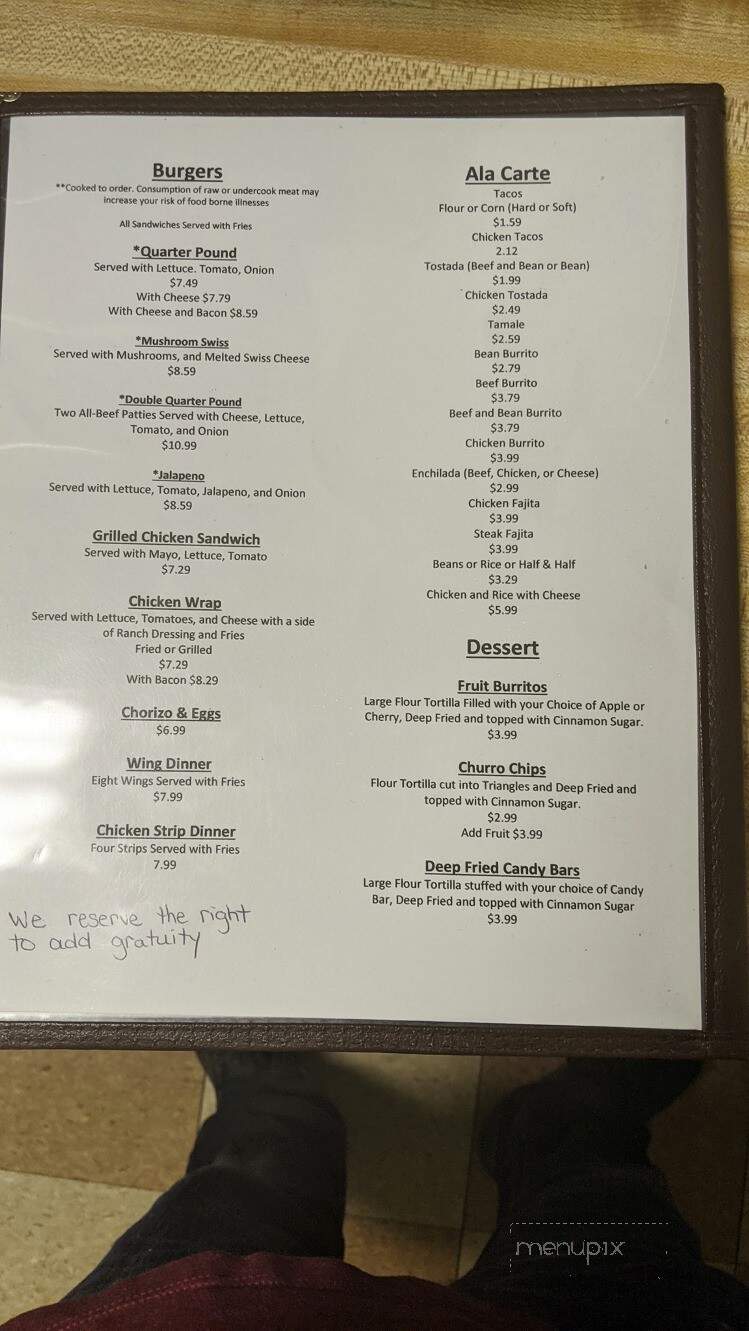 Burgers
**Cooked to order. Consumption of raw or undercook meat may
increase your risk of food borne illnesses
All Sandwiches Served with Fries
*Quarter Pound
Served with Lettuce. Tomato, Onion
$7.49
With Cheese $7.79
With Cheese and Bacon $8.59
*Mushroom Swiss
Served with Mushrooms, and Melted Swiss Cheese
$8.59
*Double Quarter Pound
Two All-Beef Patties Served with Cheese, Lettuce,
Tomato, and Onion
$10.99
*Jalapeno
Served with Lettuce, Tomato, Jalapeno, and Onion
$8.59
Grilled Chicken Sandwich
Served with Mayo, Lettuce, Tomato
$7.29
Chicken Wrap
Served with Lettuce, Tomatoes, and Cheese with a side
of Ranch Dressing and Fries
Fried or Grilled
$7.29
With Bacon $8.29
Chorizo & Eggs
$6.99
Wing Dinner
Eight Wings Served with Fries
$7.99
Chicken Strip Dinner
Four Strips Served with Fries
7.99
We reserve the right
to add gratuity
Ala Carte
Tacos
Flour or Corn (Hard or Soft)
$1.59
Chicken Tacos
2.12
Tostada (Beef and Bean or Bean)
$1.99
Chicken Tostada
$2.49
Tamale
$2.59
Bean Burrito
$2.79
Beef Burrito
$3.79
Beef and Bean Burrito
$3.79
Chicken Burrito
$3.99
Enchilada (Beef, Chicken, or Cheese)
$2.99
Chicken Fajita
$3.99
Steak Fajita
$3.99
Beans or Rice or Half & Half
$3.29
Chicken and Rice with Cheese
$5.99
Dessert
Fruit Burritos
Large Flour Tortilla Filled with your Choice of Apple or
Cherry, Deep Fried and topped with Cinnamon Sugar.
$3.99
Churro Chips
Flour Tortilla cut into Triangles and Deep Fried and
topped with Cinnamon Sugar.
$2.99
Add Fruit $3.99
Deep Fried Candy Bars
Large Flour Tortilla stuffed with your choice of Candy
Bar, Deep Fried and topped with Cinnamon Sugar
$3.99
menupix